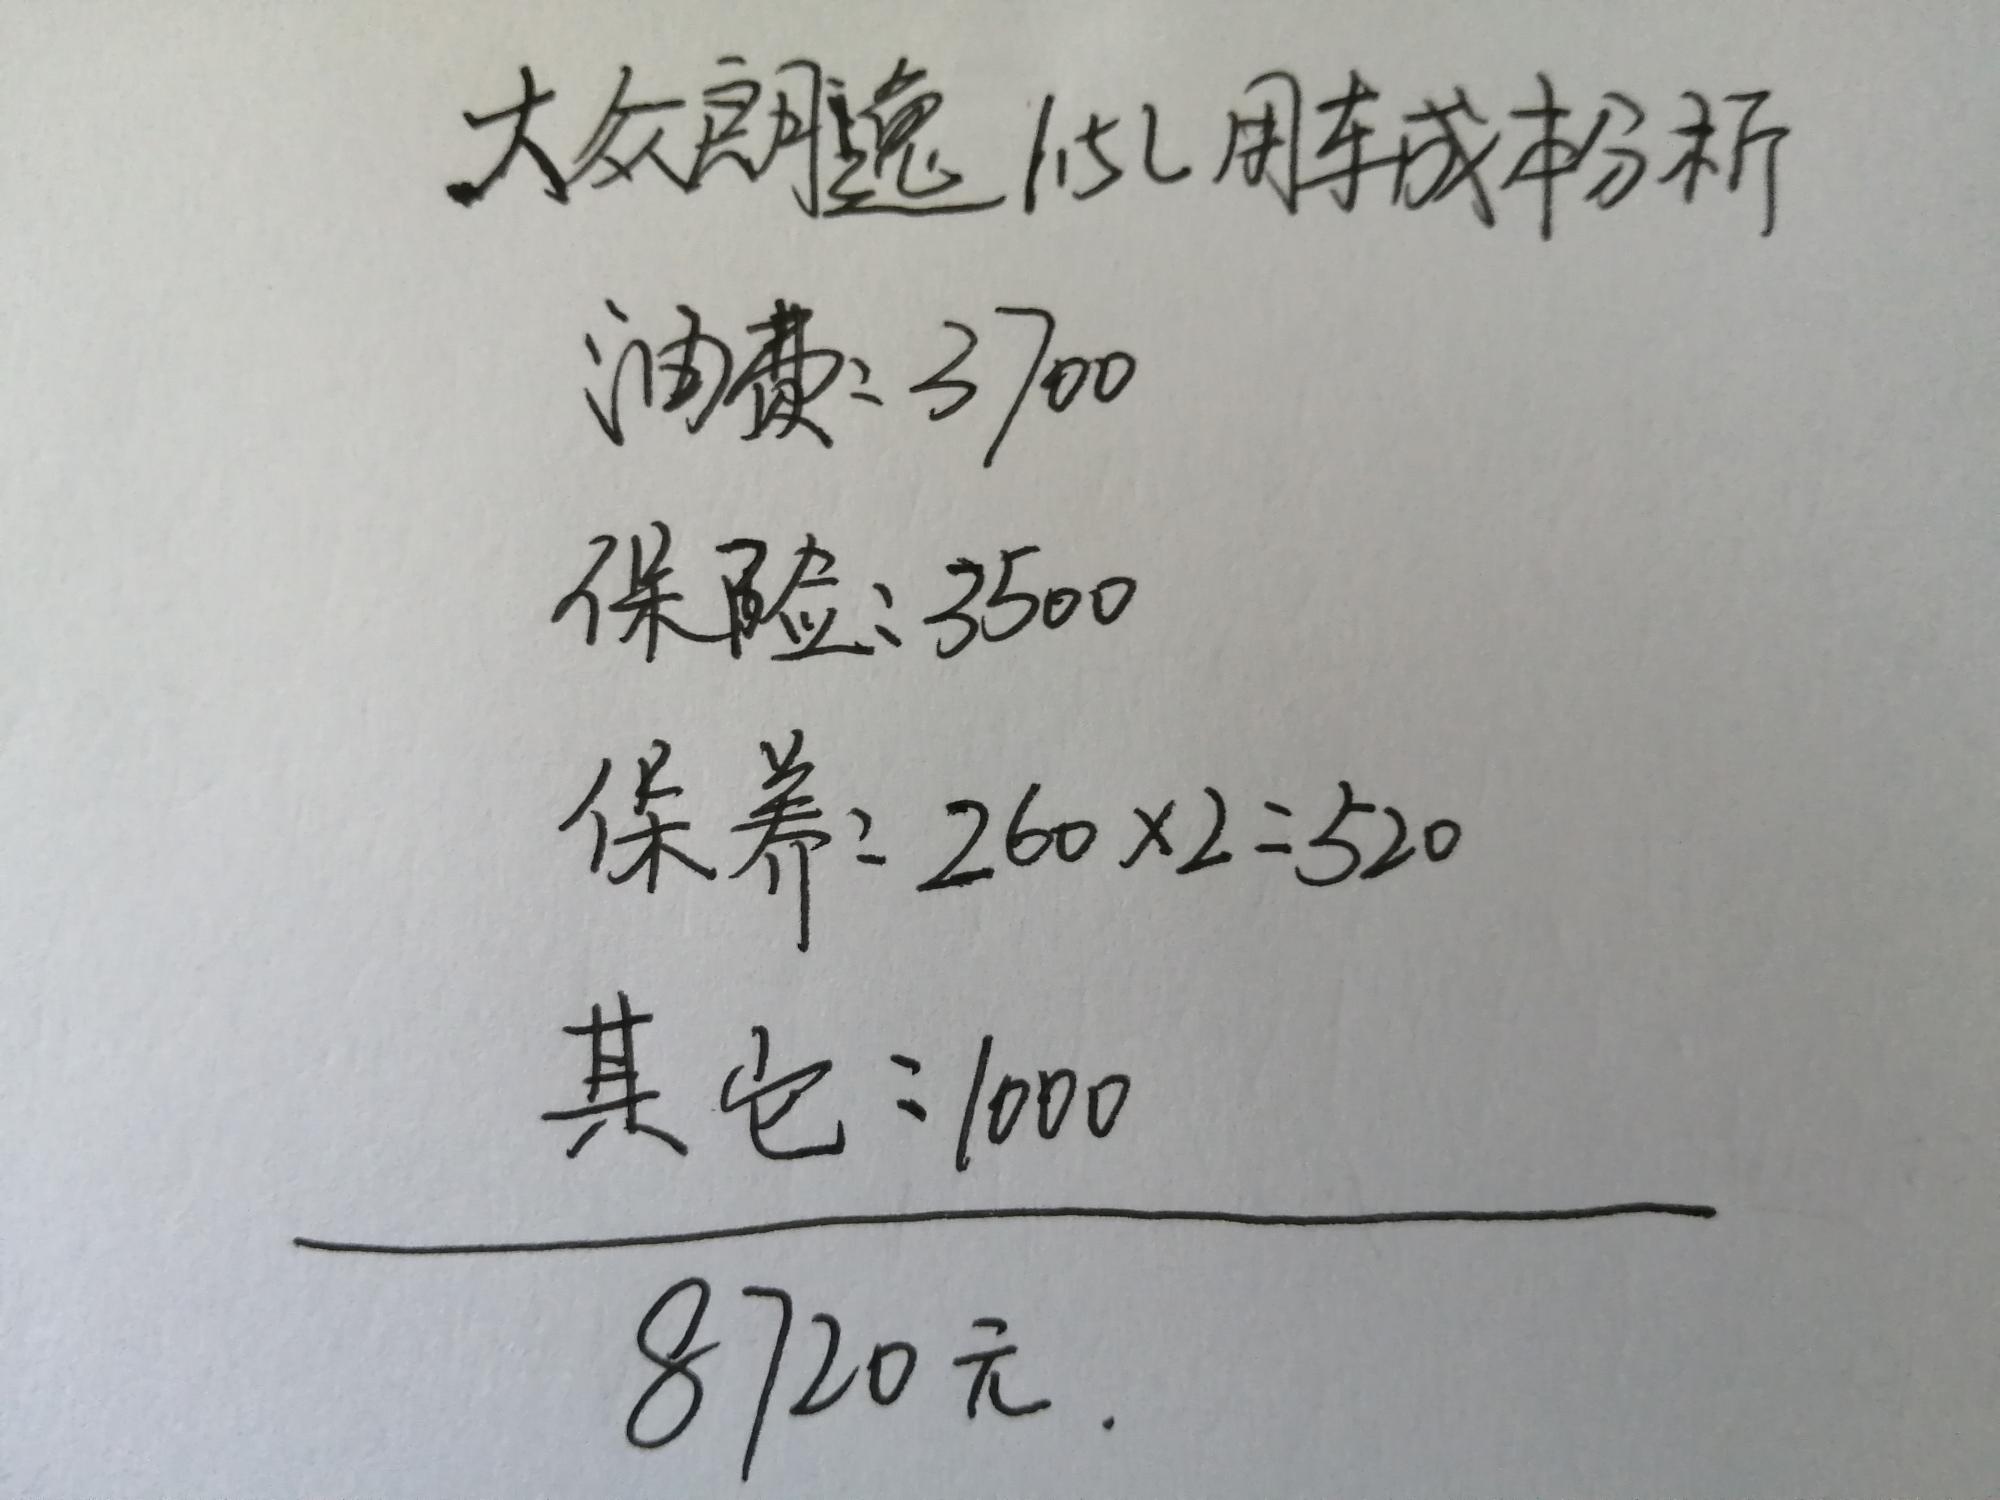 大众朗逸1.5L用车成本分析
油费：3700
保险：3500
保养：260×2=520
其它：1000
8720元.